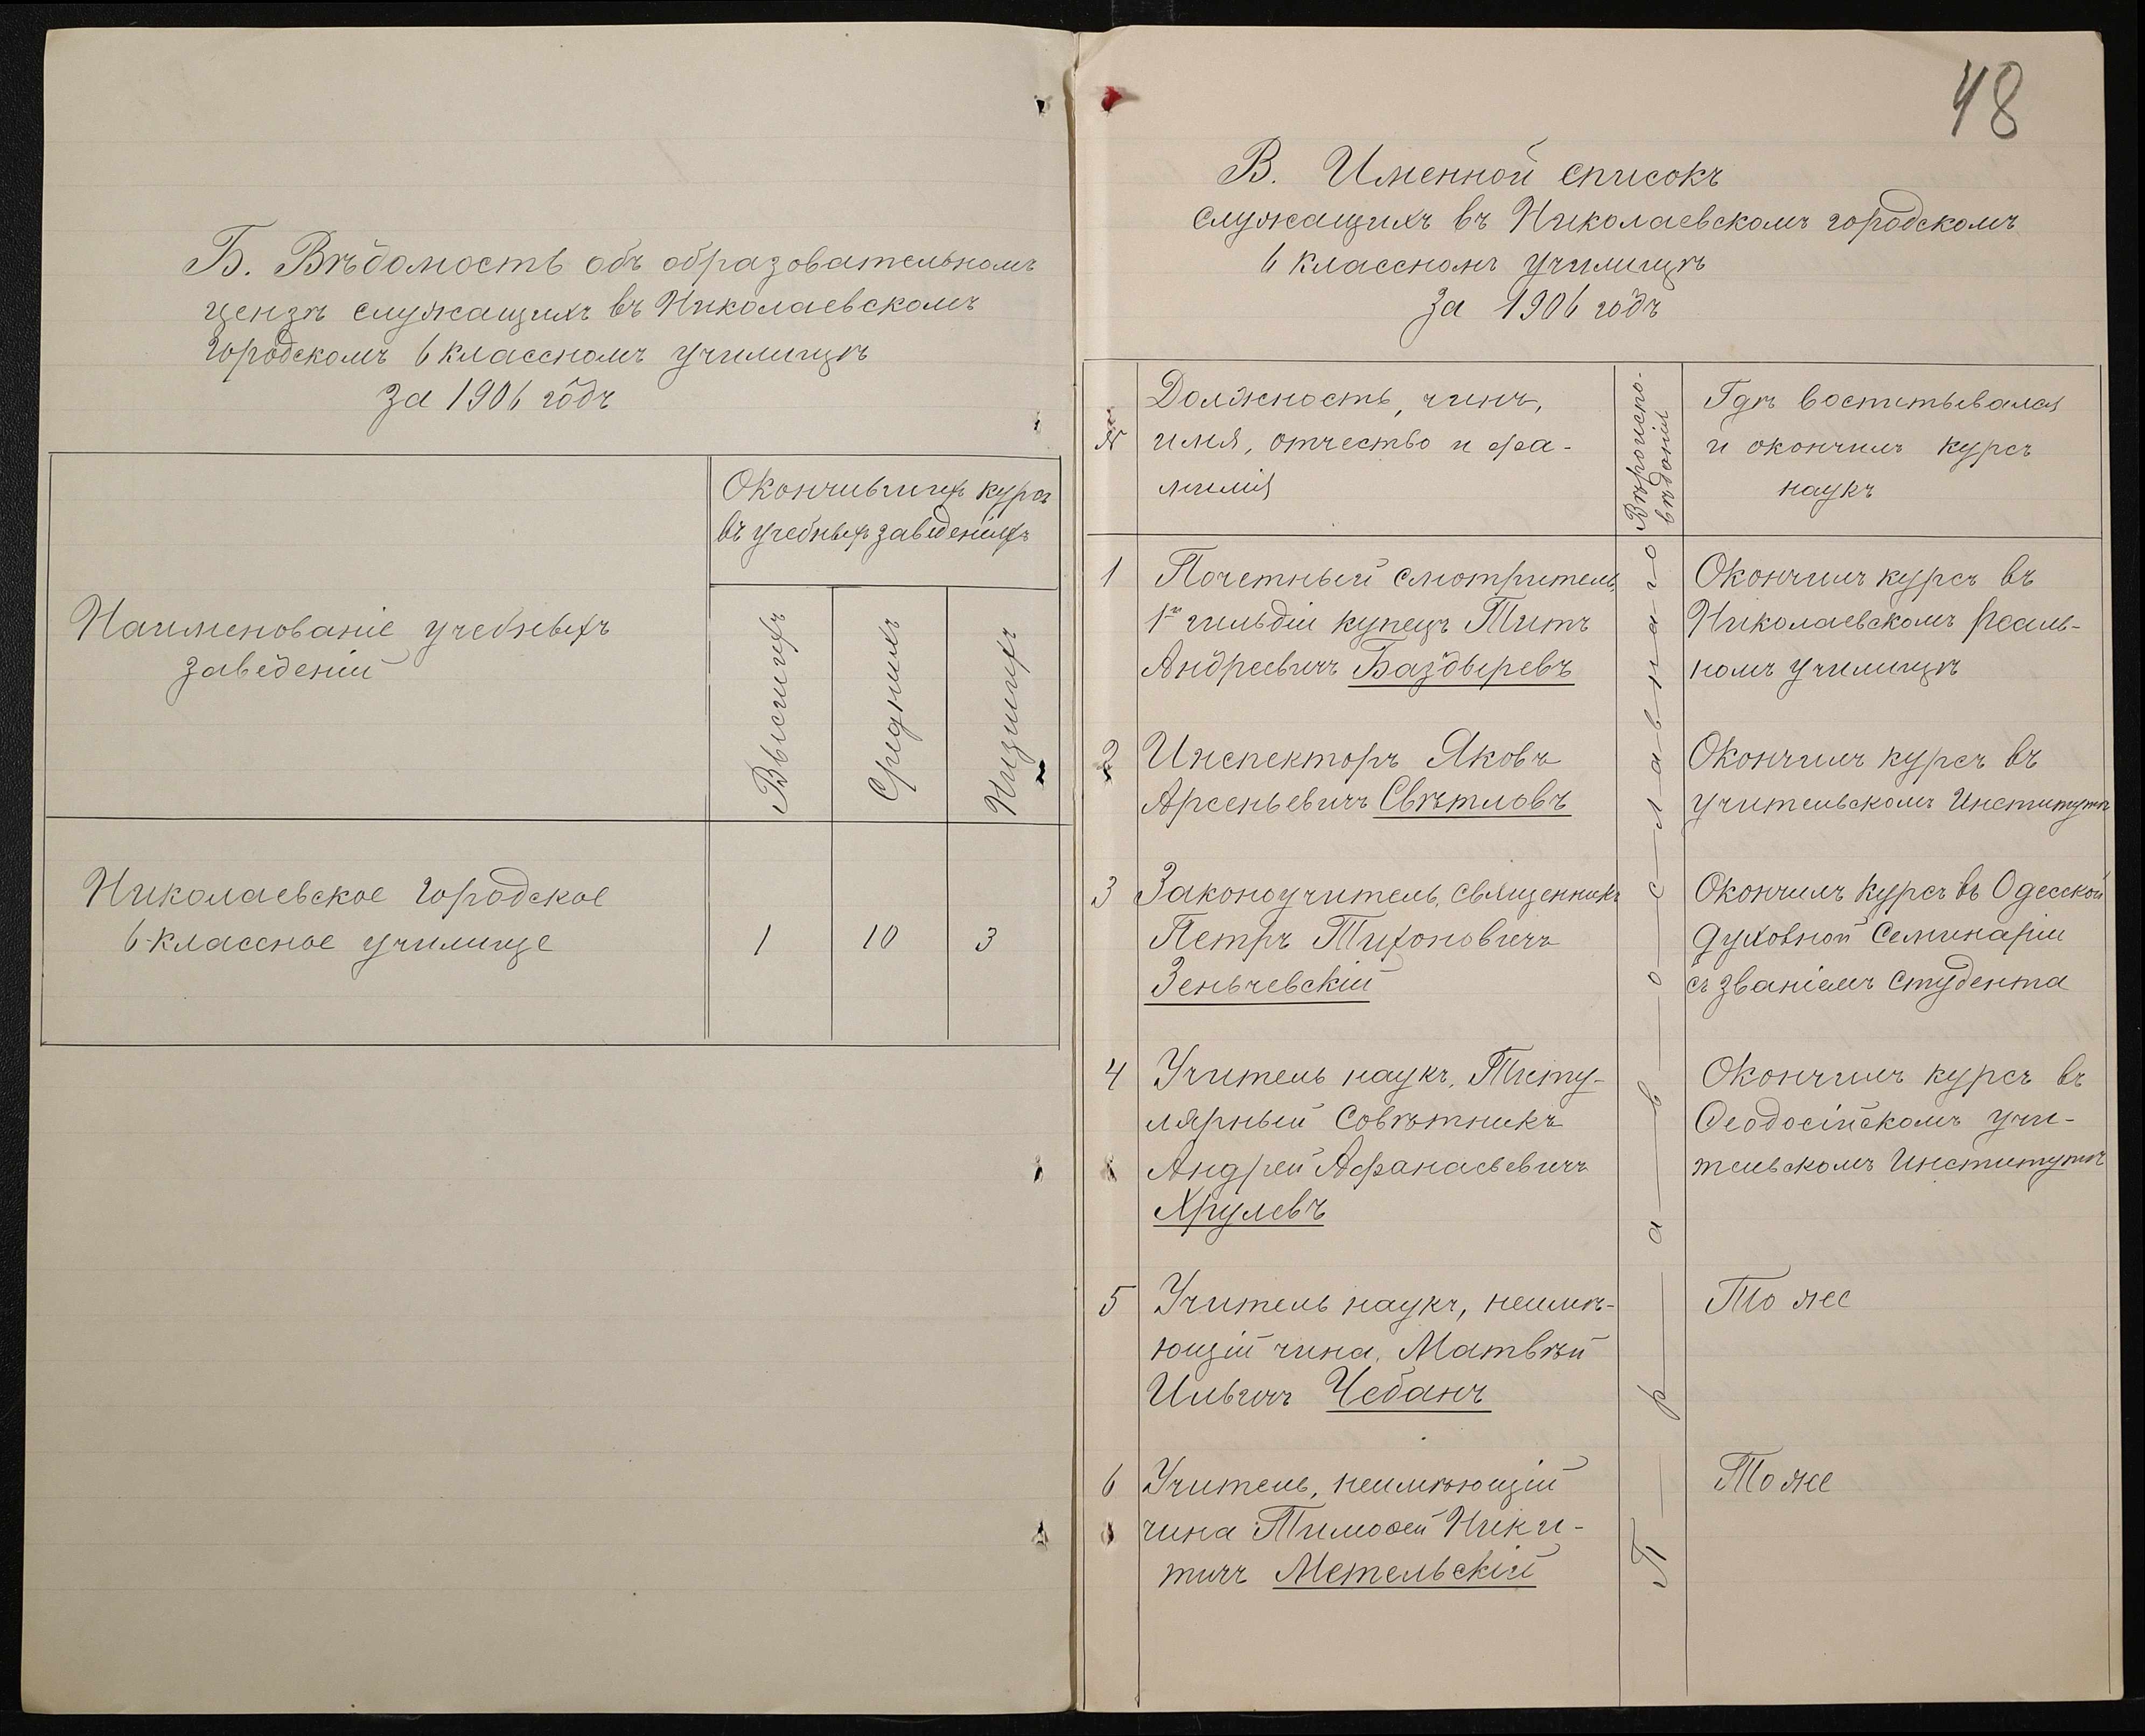 Б. Вѣдомость объ образовательномъ
цензѣ служащихъ въ Николаевскомъ
Городскомъ 6 классномъ училищѣ
за 1906 годъ
Окончившихъ курсъ
въ учебныхъ заведеніяхъ
Наименованіе учебныхъ
заведеній
Высшихъ
Среднихъ
Низшихъ
Николаевское Городское
6-классное училище
1
10
3
48
В. Именной списокъ
служащихъ въ Николаевскомъ городскомъ
6 классномъ училищѣ
За 1906 годъ
№
Должность, чинъ,
имя, отчество и фа-
милія
Вѣроиспо-
вѣданія
Гдѣ воспитывался
и окончилъ курсъ
наукъ
1
Почетный смотритель,
1й гильдіи купецъ Титъ
Андреевичъ Баздыревъ
Окончилъ курсъ въ
Николаевскомъ реаль-
номъ училищѣ
2
Инспекторъ Яковъ
Арсеньевичъ Свѣтловъ
Окончилъ курсъ въ
учительскомъ Институтѣ
3
Законоучитель, священникъ
Петръ Тихоновичъ
Зеньчевскій
Окончилъ курсъ въ Одесской
духовной Семинаріи
съ званіемъ студента
4
Учитель наукъ, Титу-
лярный Совѣтникъ
Андрей Афанасьевичъ
Хрулевъ
Окончилъ курсъ въ
Ѳеодосійскомъ учи-
тельскомъ Институтѣ
5
Учитель наукъ, неимѣ-
ющій чина, Матвѣй
Ильичъ Чебанъ
То же
6
Учитель, неимѣющій
чина Тимоѳей Ники-
тичъ Метельскій
То же
П — р — а — в — о — с — л — а — в — н — а — г — о